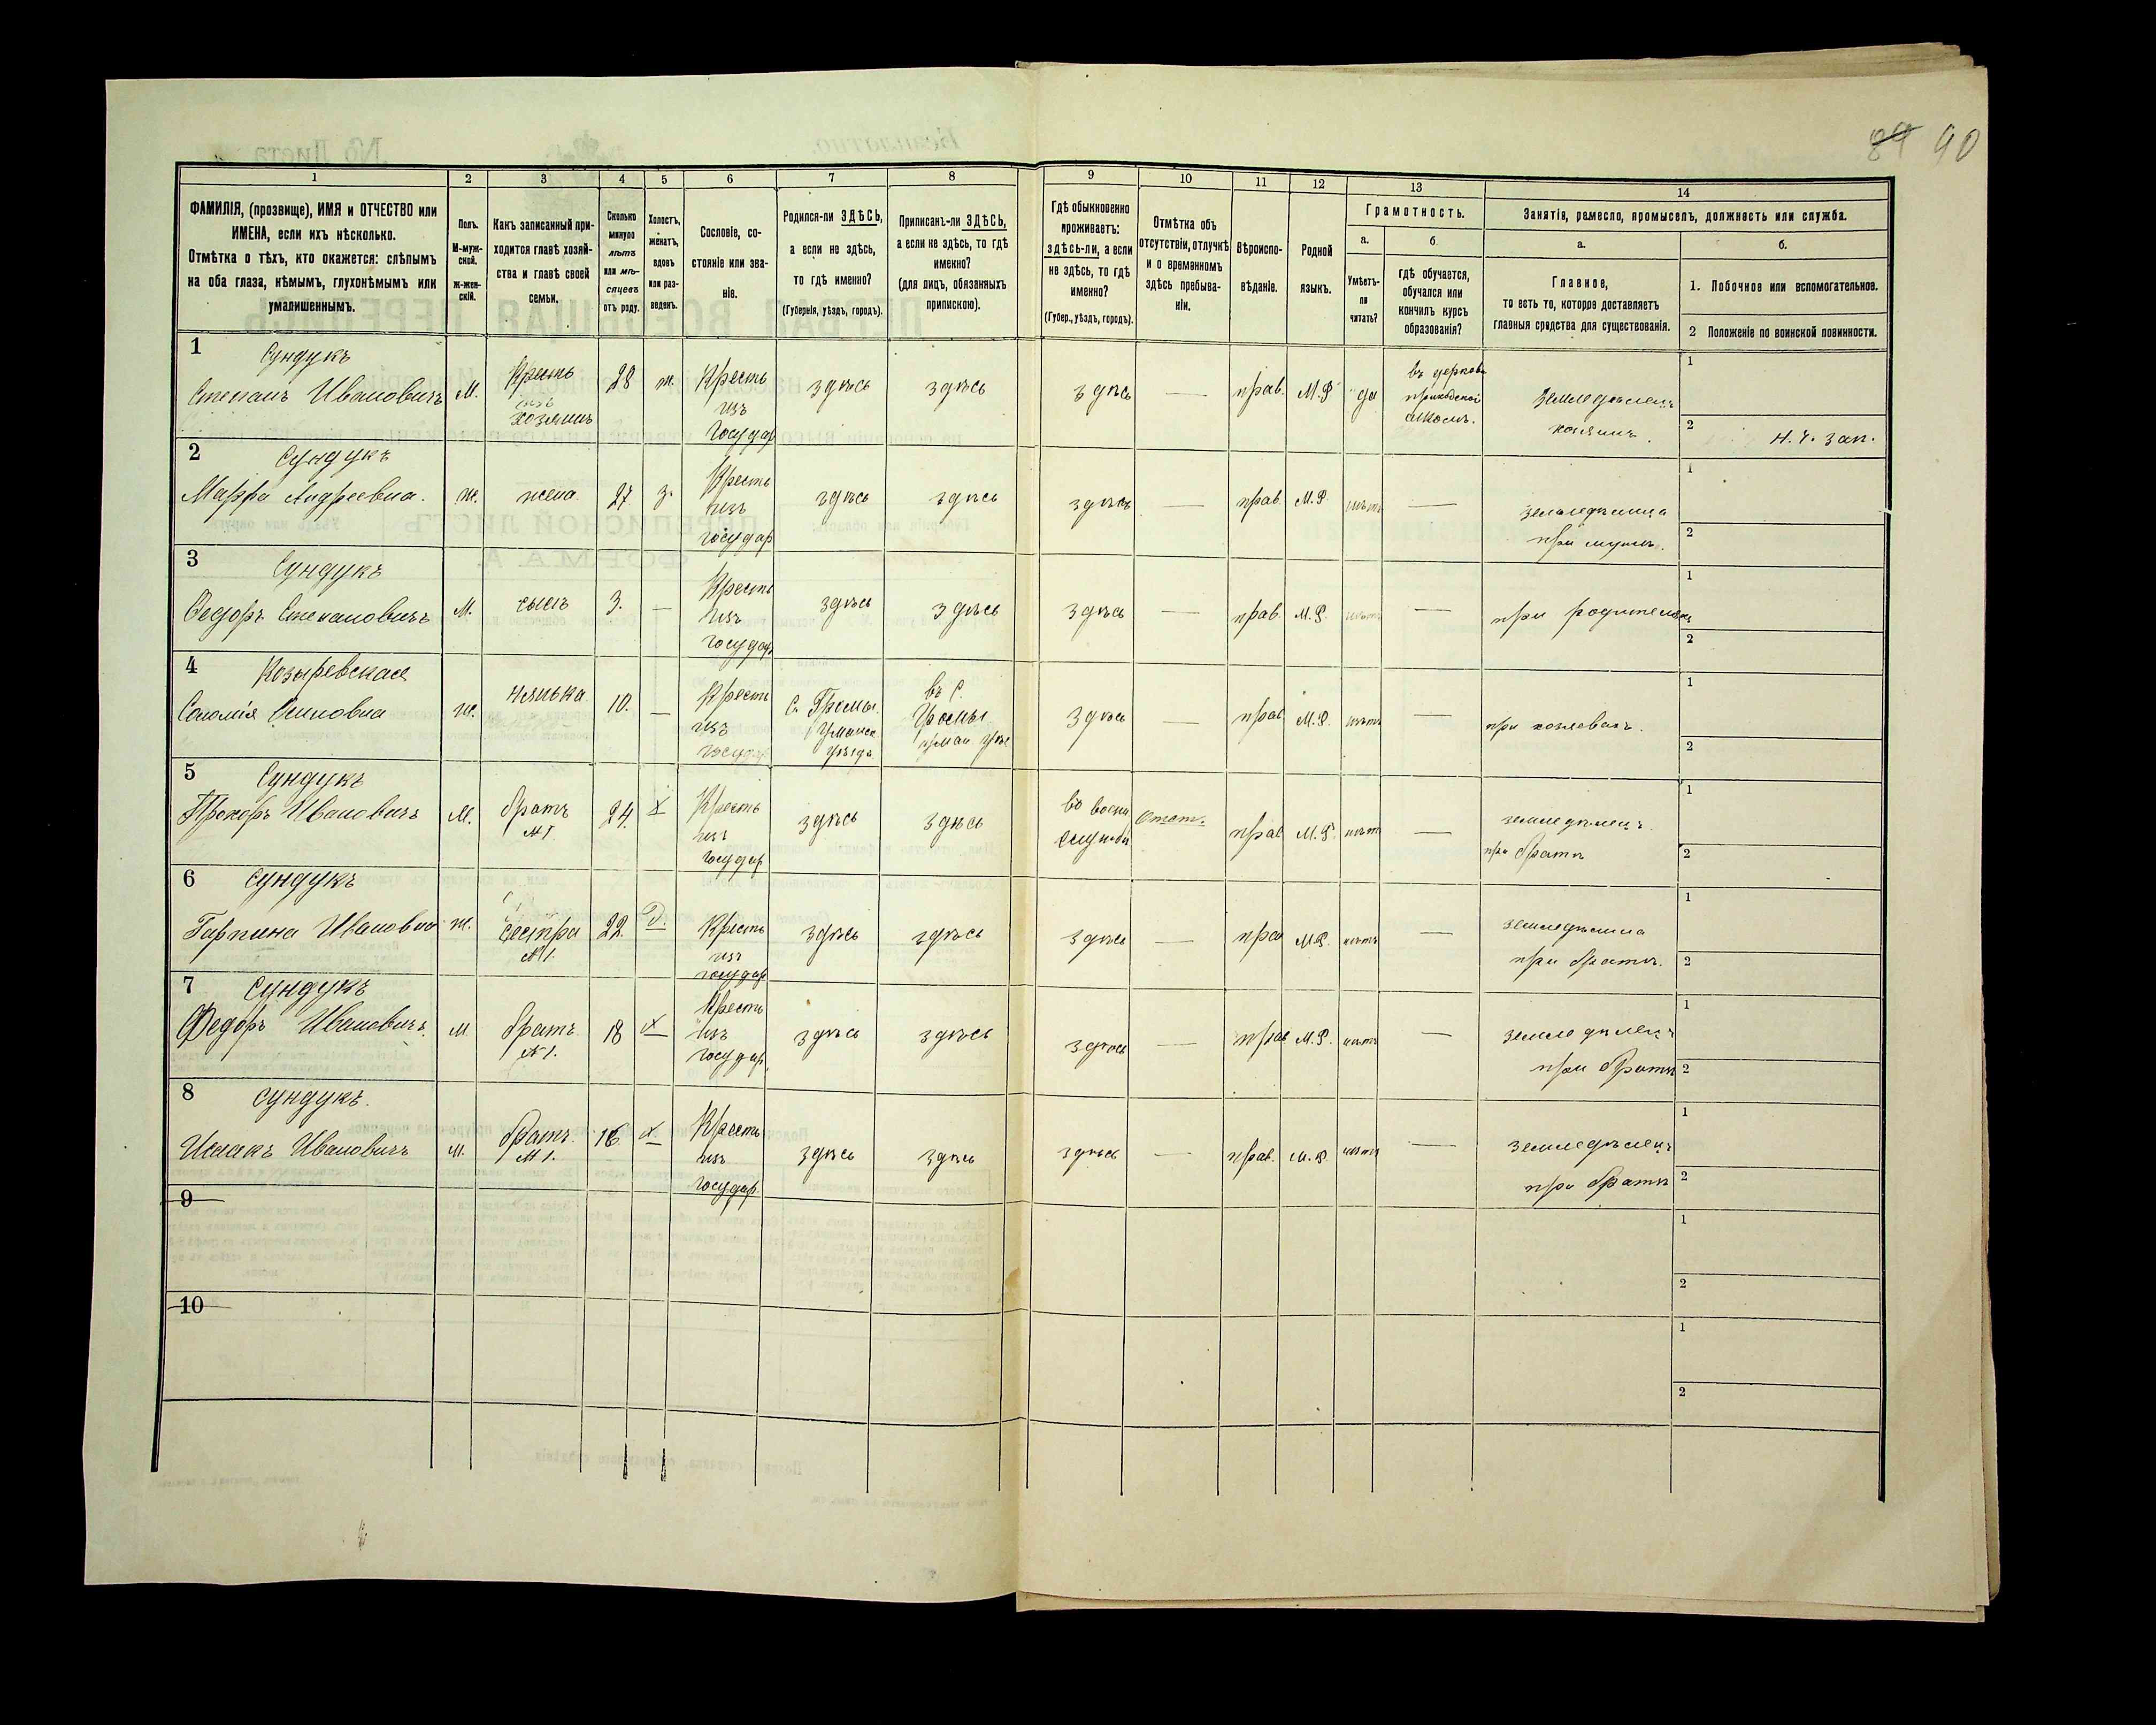 89 90
1 2 3 4 5 6 7 8 9 10 11 12 13 14
ФАМИЛІЯ, (прозвище), ИМЯ и ОТЧЕСТВО или
ИМЕНА, если ихъ нѣсколько.
Отмѣтка о тѣхъ, кто окажется: слѣпымъ
на оба глаза, нѣмымъ, глухонѣмымъ или
умалишеннымъ.
Полъ.
М-муж-
ской.
ж-жен-
скій.
Какъ записанный при-
ходится главѣ хозяй-
ства и главѣ своей
семьи.
Сколько
минуло
лѣтъ
или мѣ-
сяцевъ
отъ роду.
Холостъ,
женатъ,
вдовъ
или раз-
веденъ.
Сословіе, со-
стояніе или зва-
ніе.
Родился-ли ЗДѢСЬ,
а если не здѣсь,
то гдѣ именно?
(Губернія, уѣздъ, городъ).
Приписанъ-ли ЗДѢСЬ,
а если не здѣсь, то гдѣ
именно?
(для лицъ, обязанныхъ
припискою).
Гдѣ обыкновенно
проживаетъ:
здѣсь-ли, а если
не здѣсь, то гдѣ
именно?
(Губер., уѣздъ, городъ).
Отмѣтка объ
отсутствіи, отлучкѣ
и о временномъ
здѣсь пребыва-
ніи.
Вѣроиспо-
вѣданіе.
Родной
языкъ.
Грамотность.
а.
Умѣетъ-
ли
читать?
б.
гдѣ обучается,
обучался или
кончилъ курсъ
образованія?
Занятіе, ремесло, промыселъ, должность или служба.
а.
Главное,
то есть то, которое доставляетъ
главныя средства для существованія.
б.
1. Побочное или вспомогательное.
2 Положеніе по воинской повинности.
1 Сундукъ
Степанъ Ивановичъ
М.
Кресть
изъ
хозяинъ
28
ж.
Кресть
изъ
Государ
здѣсь
здѣсь
здѣсь
—
прав.
М.Р
да
въ церков
приходской
школѣ.
Земледѣлецъ
хозяинъ.
1
2 н. ч. зап.
2 Сундукъ
Марфа Андреевна.
ж.
жена
27
з.
Кресть
изъ
государ
здѣсь
здѣсь
здѣсь
—
прав.
М.Р
нѣтъ
—
земледѣлица
при мужѣ.
1
2
3 Сундукъ
Федоръ Степановичъ
М.
сынъ
3.
—
Кресть
изъ
государ
здѣсь
здѣсь
здѣсь
—
прав.
М.Р.
нѣтъ
—
при родителяхъ
1
2
4 Козыревская
Соломія Осиповна
ж.
нянька
10.
—
Кресть
изъ
государ
С. Громы.
Уманск.
уѣзда
въ С.
Громы
уман уѣз
здѣсь
прав
М.Р.
нѣтъ
—
при хозяевахъ.
1
2
5 Сундукъ
Прокоръ Ивановичъ
М.
братъ
№1.
24.
Х
Кресть
изъ
государ
здѣсь
здѣсь
во воен
службѣ
Отст.
прав
М.Р.
нѣтъ
—
земледѣлецъ.
при братѣ
1
2
6 Сундукъ
Гарпина Ивановна
ж.
сестра
№1.
22.
д.
Кресть
изъ
государ
здѣсь
здѣсь
здѣсь
—
прав
М.Р.
нѣтъ
—
земледѣлица
при братѣ.
1
2
7 Сундукъ
Федоръ Ивановичъ.
М
братъ
№1.
18
х
Кресть
изъ
государ.
здѣсь
здѣсь
здѣсь
—
прав
М.Р.
нѣтъ
—
земледѣлецъ
при братѣ
1
2
8 Сундукъ.
Исаакъ Ивановичъ
М.
братъ.
№1.
16
х.
Кресть
изъ
государ.
здѣсь
здѣсь
здѣсь
—
прав.
М.Р.
нѣтъ
—
земледѣлецъ
при братѣ
1
2
9
1
2
10
1
2